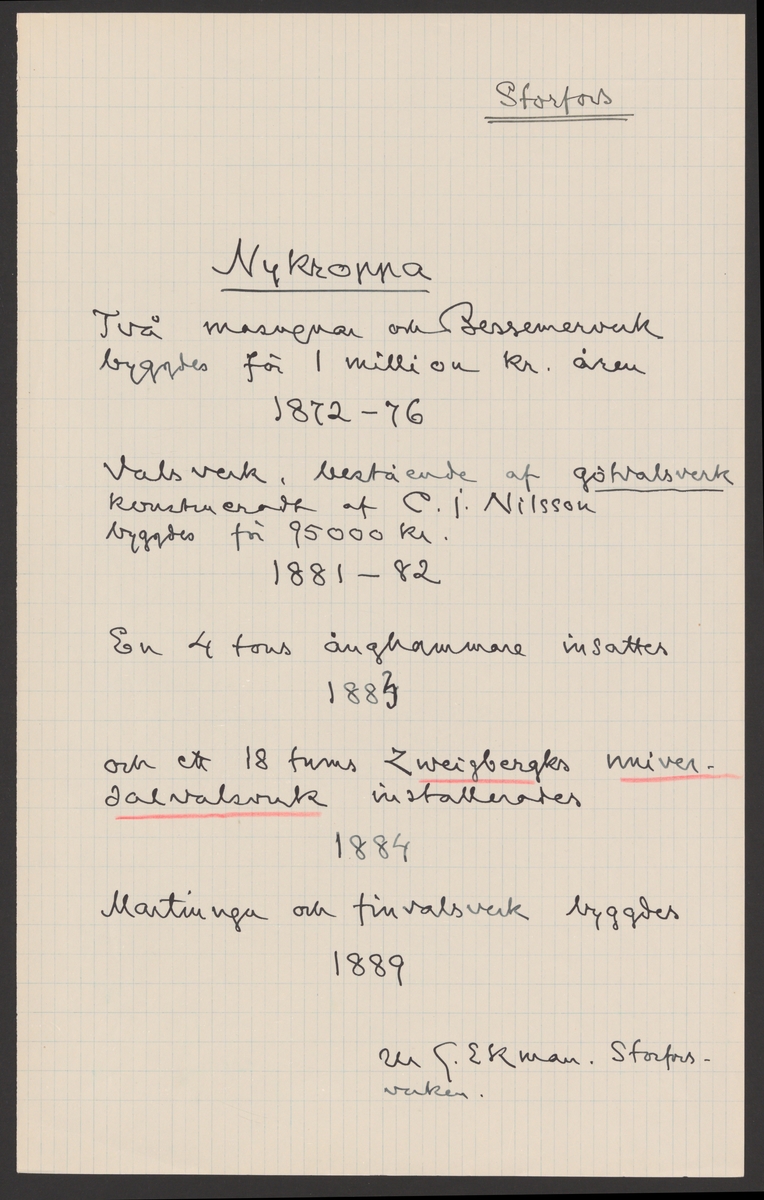 Storfors
Nykroppa
Två masugnar och Bessemerverk
byggdes för 1 million kr. åren
1872-76
Valsverk, bestående af götvalsverk
konstrueradt af C. J. Nilsson
byggdes för 95000 kr.
1881-82
En 4 tons ånghammare insattes
1883
och ett 18 tums Zweigbergks univer-
salvalsverk installerades
1884
Martinugn och finvalsverk byggdes
1889
ur G. Ekman. Storfors-
verken.